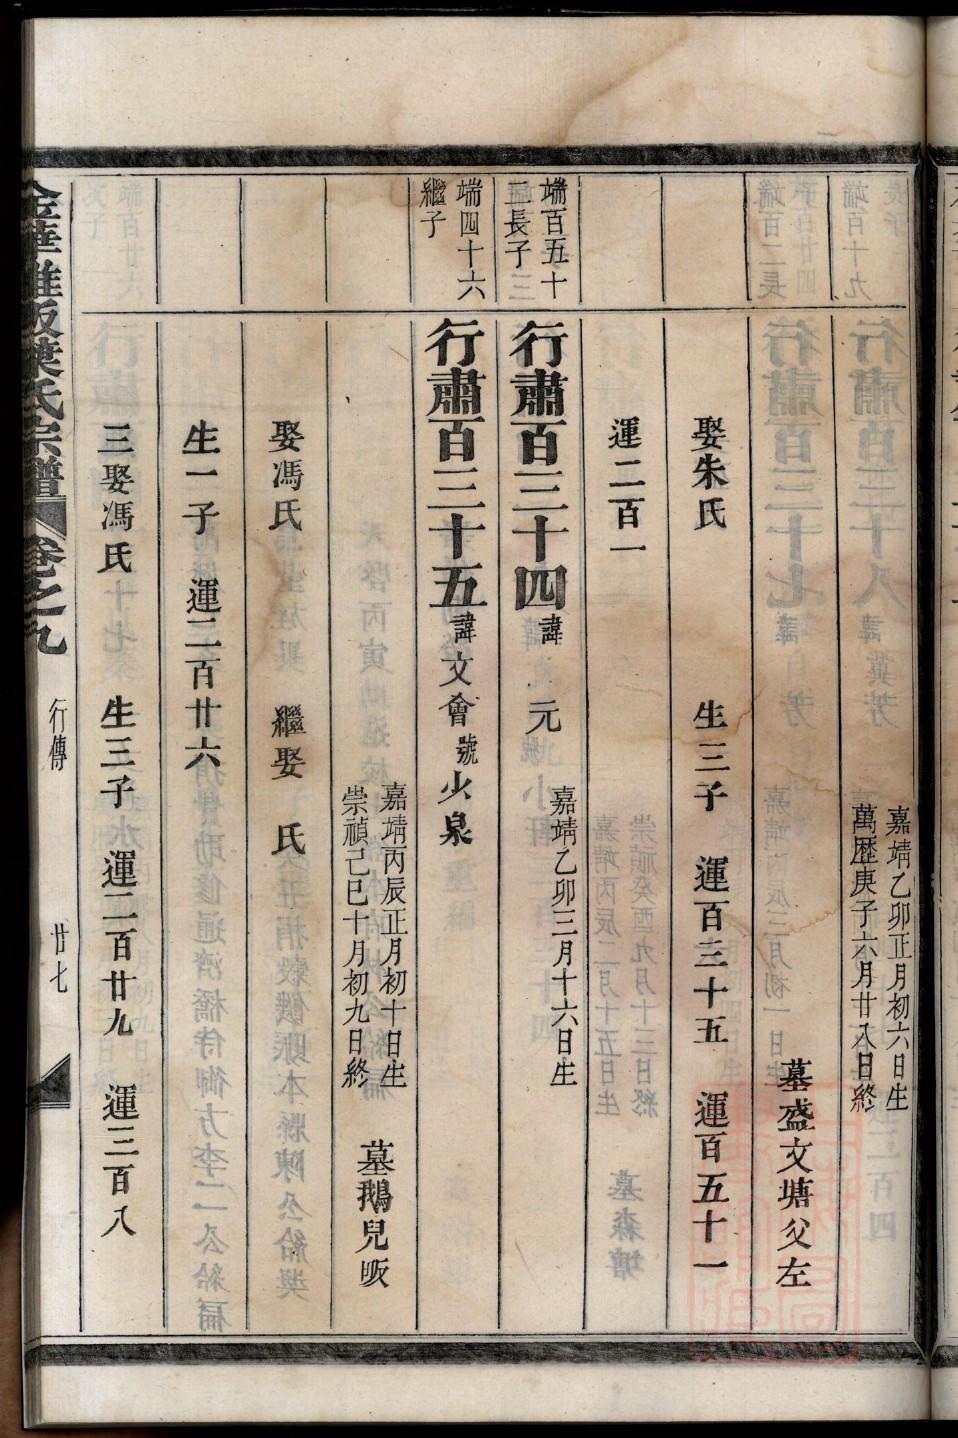 嘉靖乙卯正月初六日生
萬歷庚子六月廿八日終
墓盛文塘父左
娶朱氏 生三子 運百三十五 運百五十一
運二百一
端百五十
二長子
行肅百三十四 諱元
嘉靖乙卯三月十六日生
端四十六
繼子
行肅百三十五 諱文會 號少泉
嘉靖丙辰正月初十日生
崇禎己巳十月初九日終
墓鵝兒畈
娶馮氏 繼娶 氏
生一子 運二百廿六
三娶馮氏 生三子 運二百廿九 運三百八
氏宗譜 卷之九 行傳 廿七